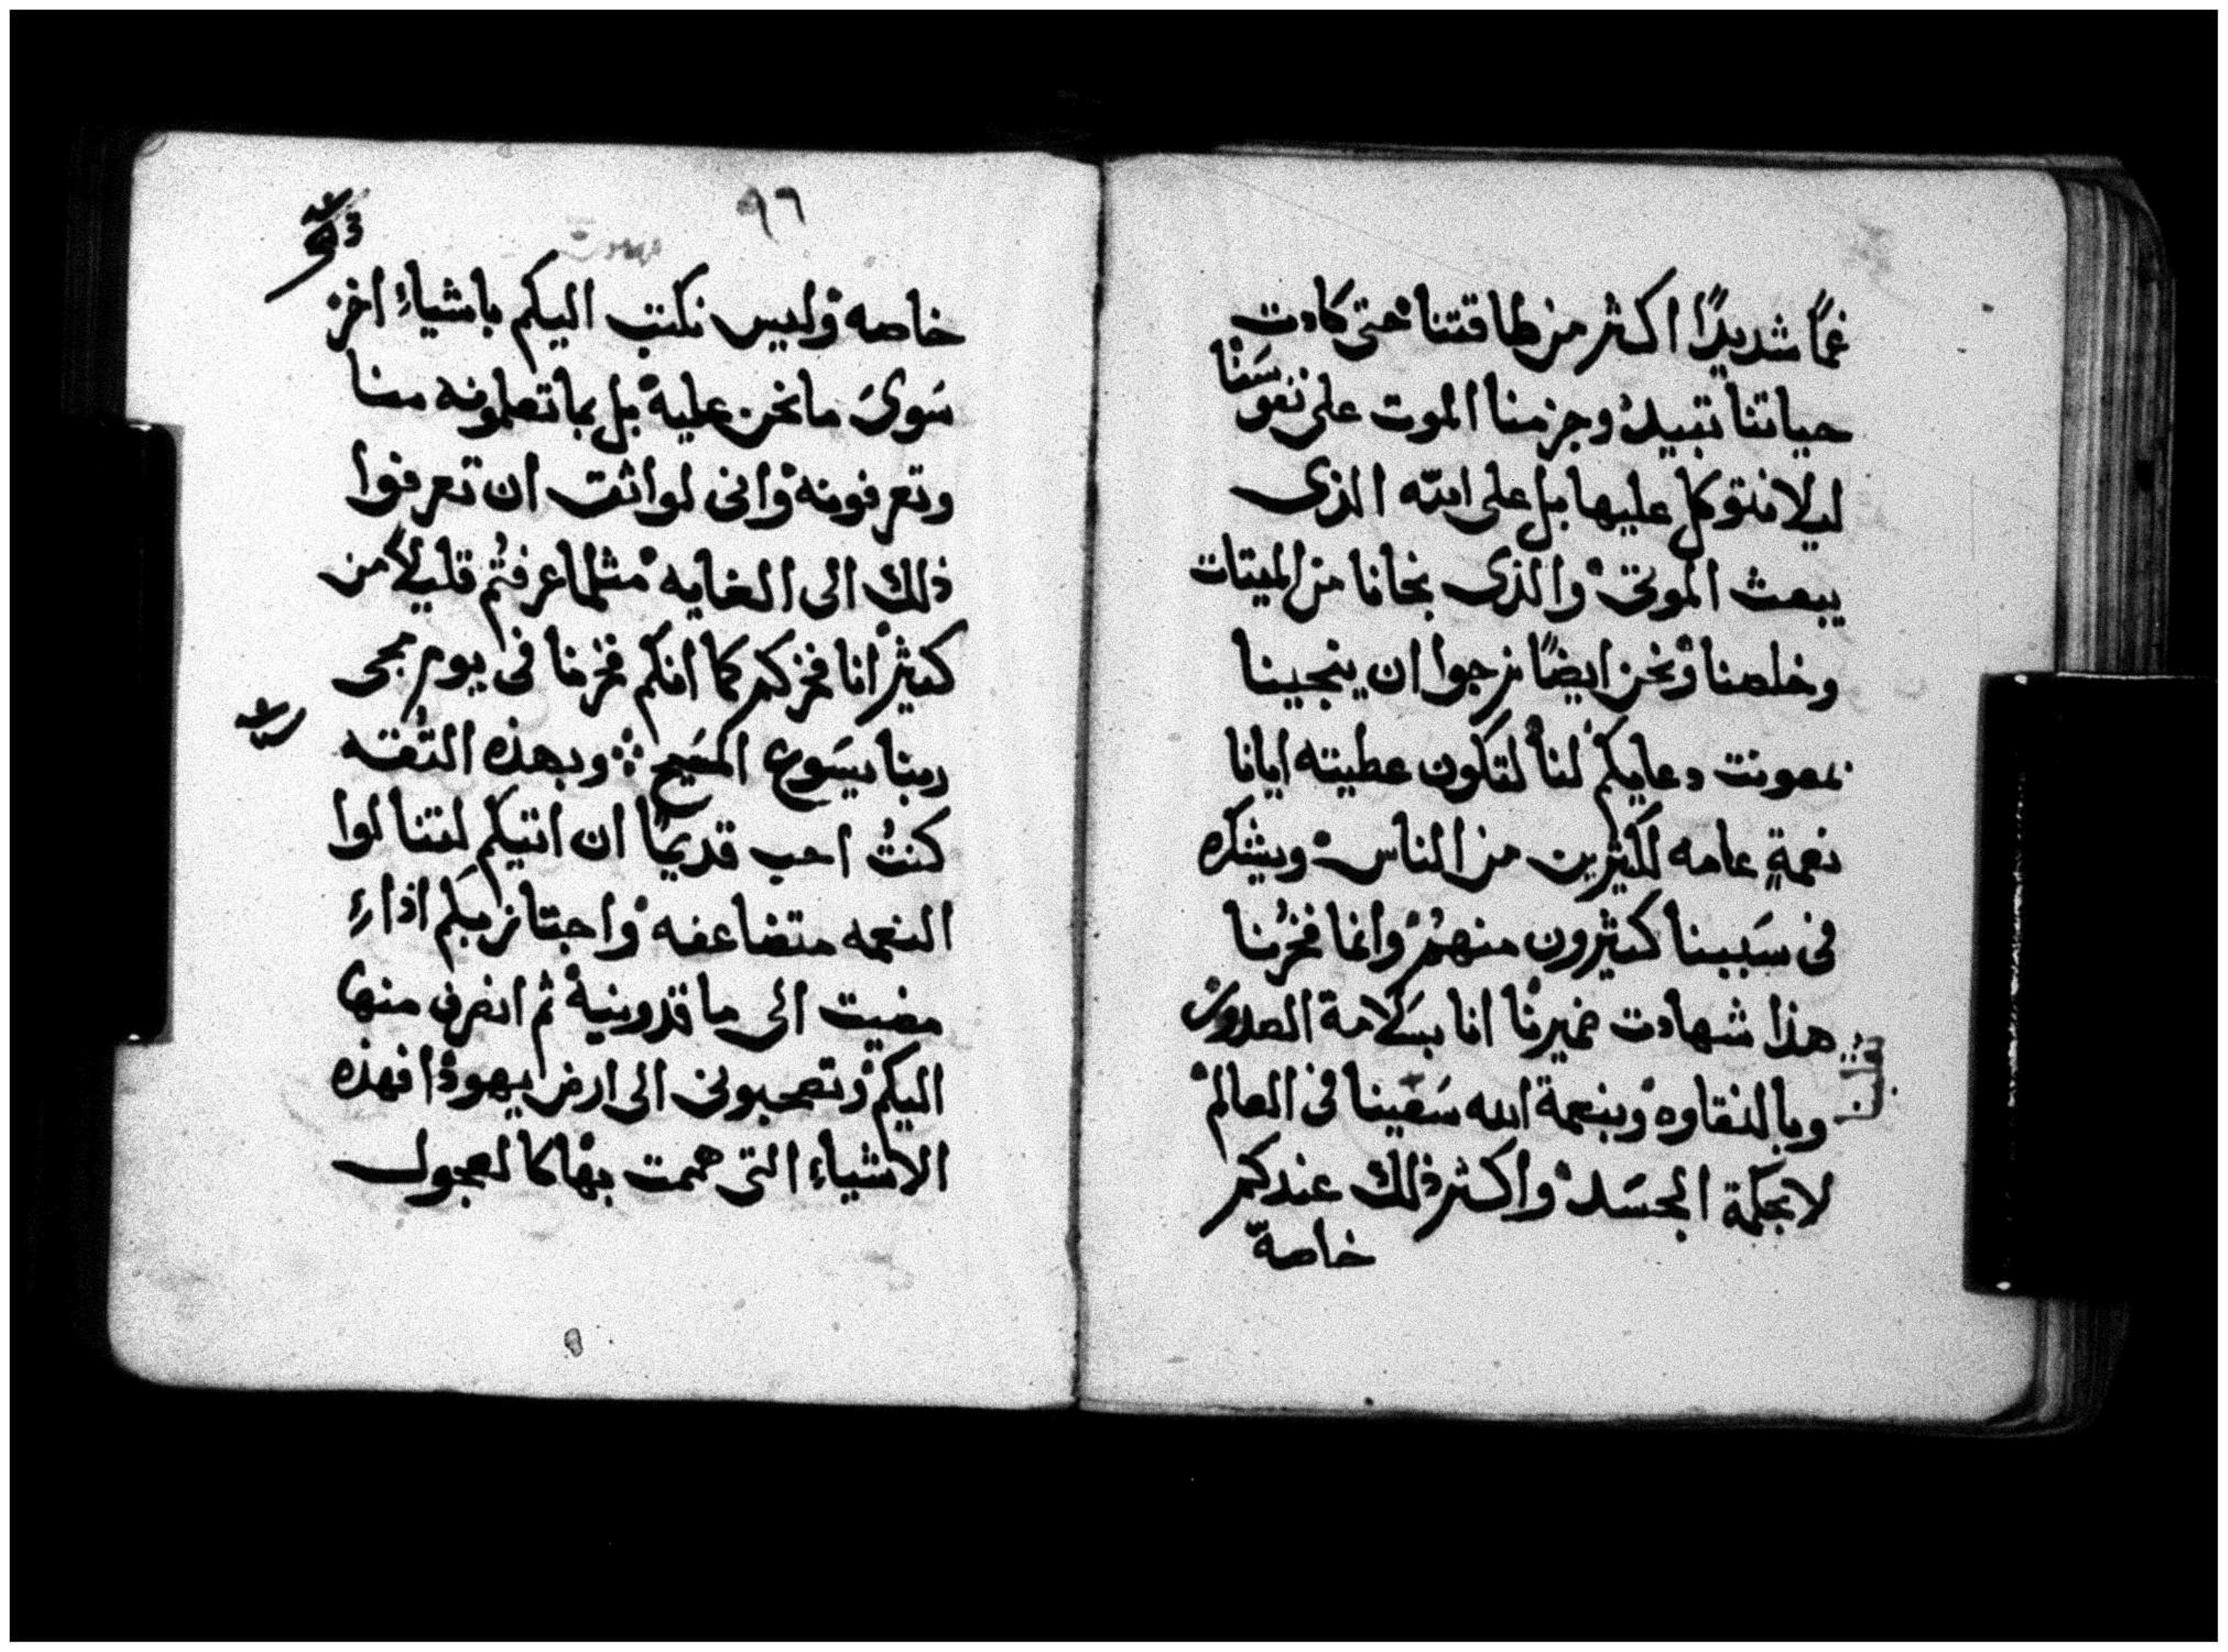 غمًا شديدًا اكثر من طاقتنا حتى كادت
حياتنا تبيد وجزمنا الموت على نفوسَنا
ليلا نتوكل عليها بل على الله الذى
يبعث الموتى والذى نجانا من الميتات
وخلصنا ونحن ايضًا نرجوا ان ينجينا
بمعونت دعايكم لنا لتكون عطيته ايانا
نعمةٍ عامه لكثيرين من الناس ويشكره
فى سَببنا كثيرون منهم وانما فخرُنا
هذا شهادت ضميرنا انا بسَلامة الصدور
وبالنقاوه وبنعمة الله سَعَينا فى العالم
لا بحكمة الجسَد واكثر ذلك عندكم
خاصةّ
٩٦
خاصه وليس نكتب اليكم باشياءِ اخر
سَوىَ ما نحن عليه بل بما تعلمونه منا
وتعرفونه وانى لواثق ان تعرفوا
ذلك الى الغايه مثلما عرفتُم قليلاً من
كثير انا فخركم كما انكم فخرنا فى يوم مجى
ربنا يسَوع المسَيح وبهذه الثقه
كنتُ احب قديمًا ان اتيكم لتنالوا
النعمه متضاعفه واجتاز بكم اذا
مضيت الى ماقدونية ثم انصرف منها
اليكم وتصحبونى الى ارض يهوذا فهذه
الاشياءِ التى هممت بها كالعجول